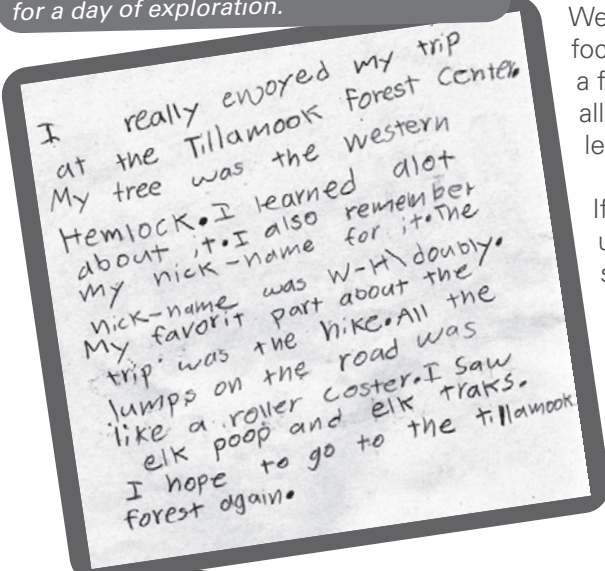 for a day of exploration.
I really enjoyed my trip
at the Tillamook Forest Center.
My tree was the western
Hemlock. I learned alot
about it. I also remember
my nick-name for it. The
nick-name was W-H\doubly.
My favorit part about the
trip was the hike. All the
lumps on the road was
like a roller coster. I saw
elk poop and elk traks.
I hope to go to the tillamook
forest again.
We
foc
a f
all
le
If
u
s